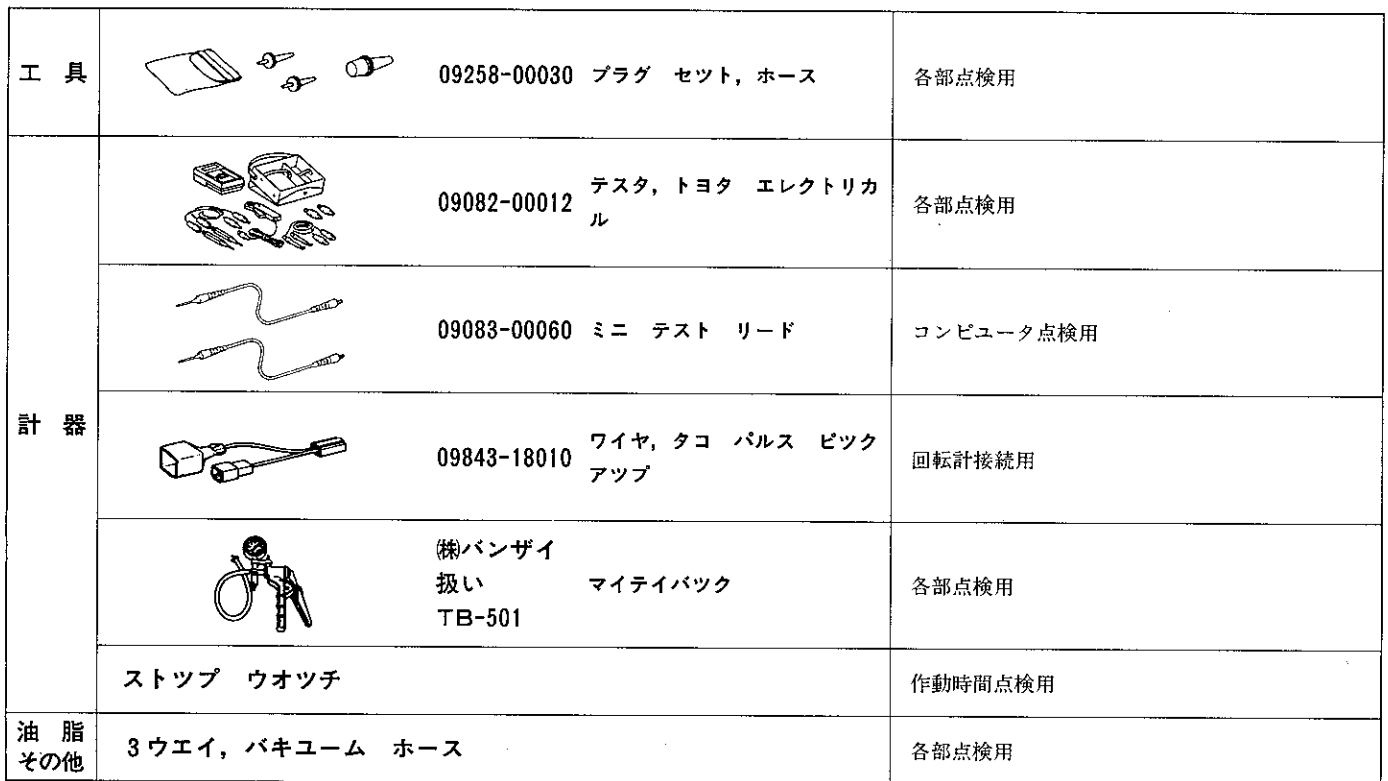 工具
09258-00030 プラグ セツト, ホース
各部点検用
計器
09082-00012
テスタ, トヨタ エレクトリカ
ル
各部点検用
09083-00060 ミニ テスト リード
コンピユータ点検用
09843-18010
ワイヤ, タコ パルス ピツク
アツプ
回転計接続用
㈱バンザイ
扱い
TB-501
マイテイバツク
各部点検用
ストツプ ウオツチ
作動時間点検用
油脂
その他
3ウエイ, バキユーム ホース
各部点検用